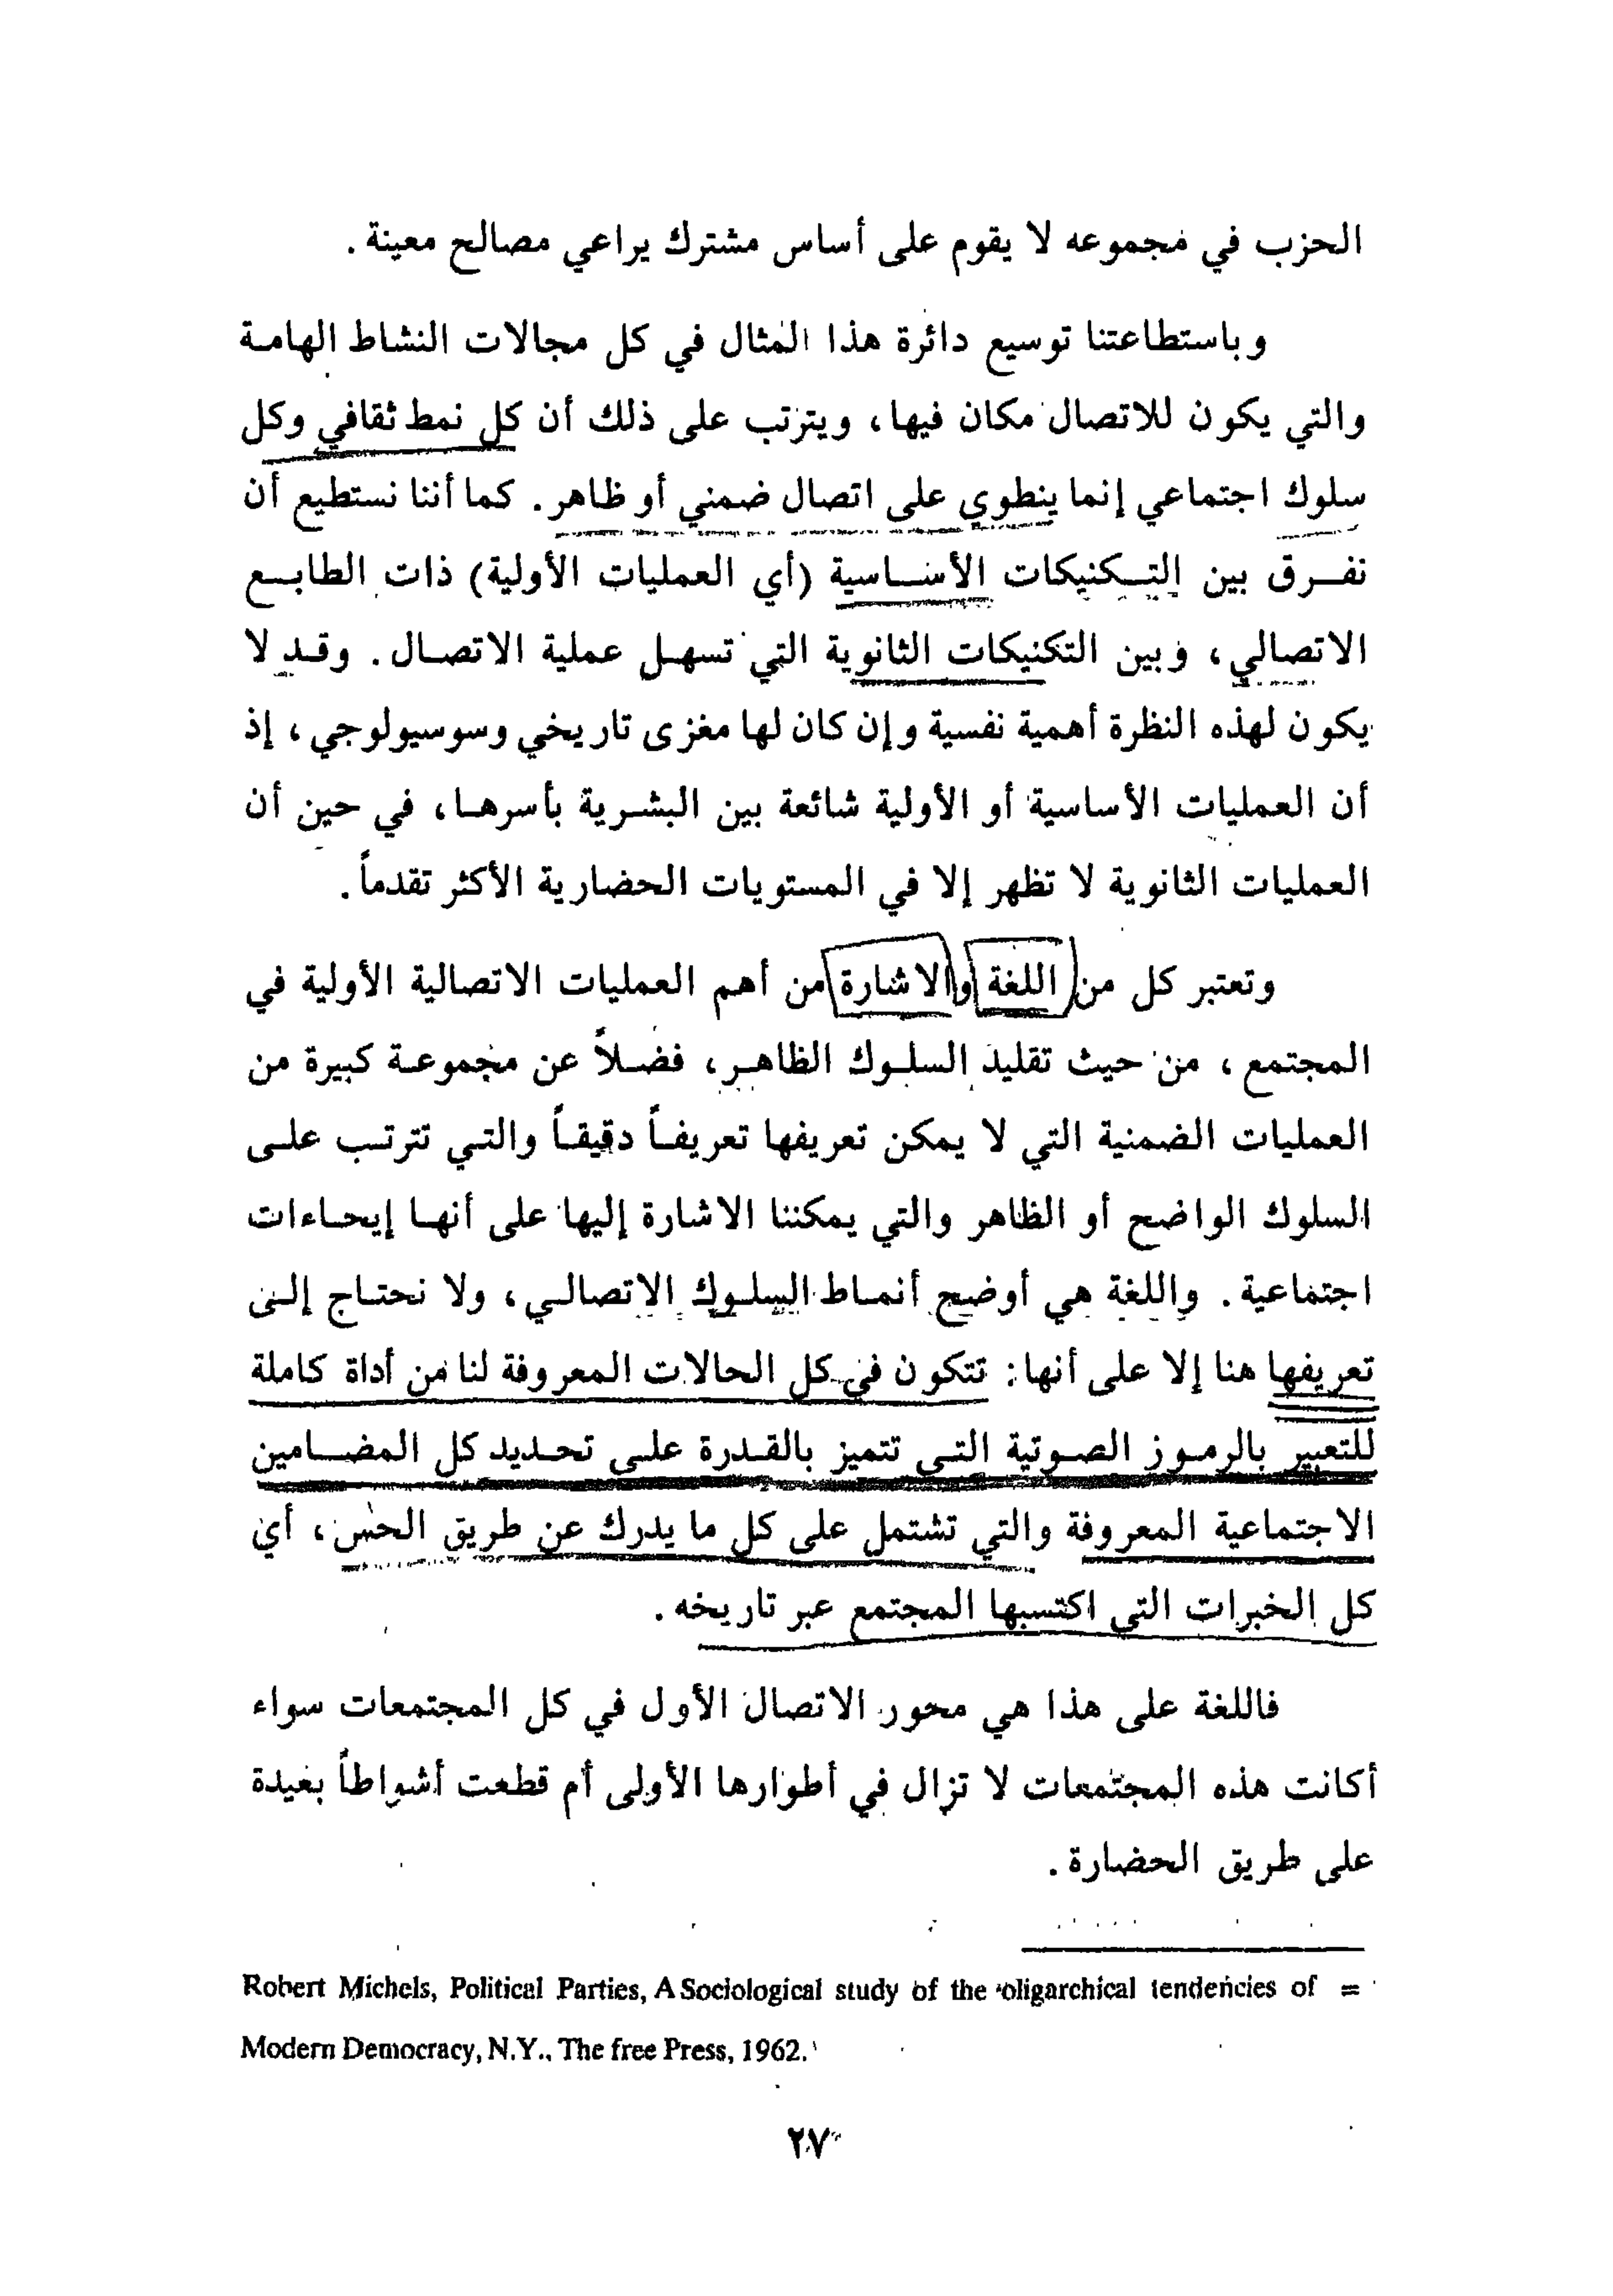 الحزب في مجموعه لا يقوم على أساس مشترك يراعي مصالح معينة .
وباستطاعتنا توسيع دائرة هذا المثال في كل مجالات النشاط الهامـة
والتي يكون للاتصال مكان فيها، ويترتب على ذلك أن كل نمط ثقافي وكل
سلوك اجتماعي إنما ينطوي على اتصال ضمني أو ظاهر. كما أننا نستطيع أن
نفـرق بين التـكنيكات الأسـاسية (أي العمليات الأولية) ذات الطابـع
الاتصالي، وبين التكنيكات الثانوية التي تسهـل عملية الاتصـال. وقـد لا
يكون لهذه النظرة أهمية نفسية وإن كان لها مغزى تاريخي وسوسيولوجي، إذ
أن العمليات الأساسية أو الأولية شائعة بين البشـرية بأسرهـا، في حين أن
العمليات الثانوية لا تظهر إلا في المستويات الحضارية الأكثر تقدماً.
وتعتبر كل من اللغة والاشارة من أهم العمليات الاتصالية الأولية في
المجتمع، من حيث تقليد السلـوك الظاهـر، فضـلاً عن مجموعـة كبيرة من
العمليات الضمنية التي لا يمكن تعريفها تعريفـاً دقيقـاً والتـي تترتـب علـى
السلوك الواضح أو الظاهر والتي يمكننا الاشارة إليها على أنهـا إيحـاءات
اجتماعية. واللغة هي أوضح أنمـاط السلـوك الاتصالـي، ولا نحتـاج إلـى
تعريفها هنا إلا على أنها: تتكون في كل الحالات المعروفة لنا من أداة كاملة
للتعبير بالرمـوز الصـوتية التـي تتميز بالقـدرة علـى تحـديد كل المضـامين
الاجتماعية المعروفة والتي تشتمل على كل ما يدرك عن طريق الحس، أي
كل الخبرات التي اكتسبها المجتمع عبر تاريخه.
فاللغة على هذا هي محور الاتصال الأول في كل المجتمعات سواء
أكانت هذه المجتمعات لا تزال في أطوارها الأولى أم قطعت أشواطاً بعيدة
على طريق الحضارة.
Robert Michels, Political Parties, A Sociological study of the oligarchical tendencies of =
Modern Democracy, N.Y., The free Press, 1962.
٢٧